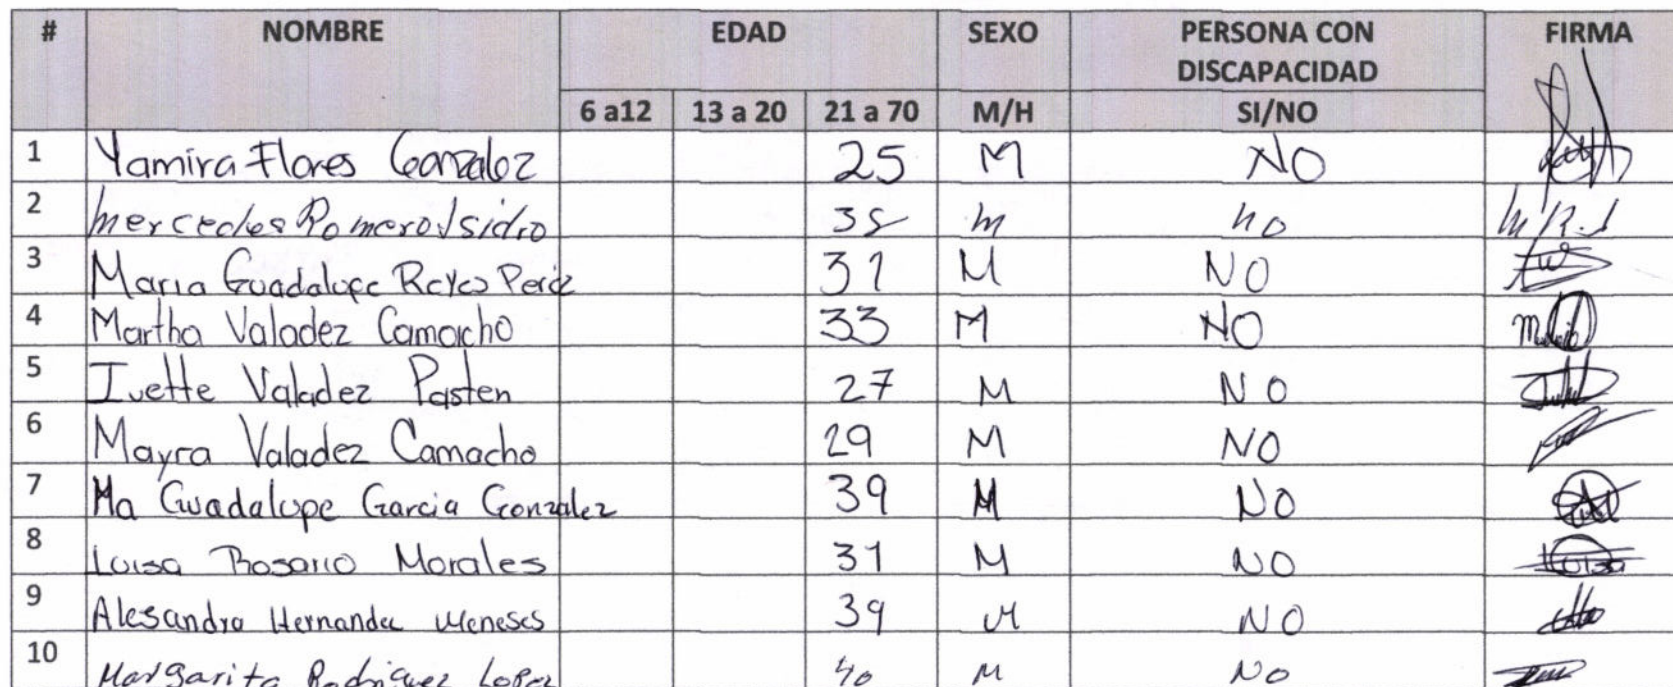 # NOMBRE EDAD SEXO PERSONA CON DISCAPACIDAD FIRMA
6 a12 13 a 20 21 a 70 M/H SI/NO
1 Yamira Flores Gonzalez 25 M NO
2 Mercedes Romero Isidro 35 M no
3 Maria Guadalupe Reyes Perez 31 M NO
4 Martha Valadez Camacho 33 M NO
5 Ivette Valadez Pasten 27 M NO
6 Mayra Valadez Camacho 29 M NO
7 Ma Guadalupe Garcia Gonzalez 39 M NO
8 Luisa Rosario Morales 31 M NO
9 Alesandra Hernandez Meneses 39 M NO
10 Margarita Rodriguez Lopez 40 M NO